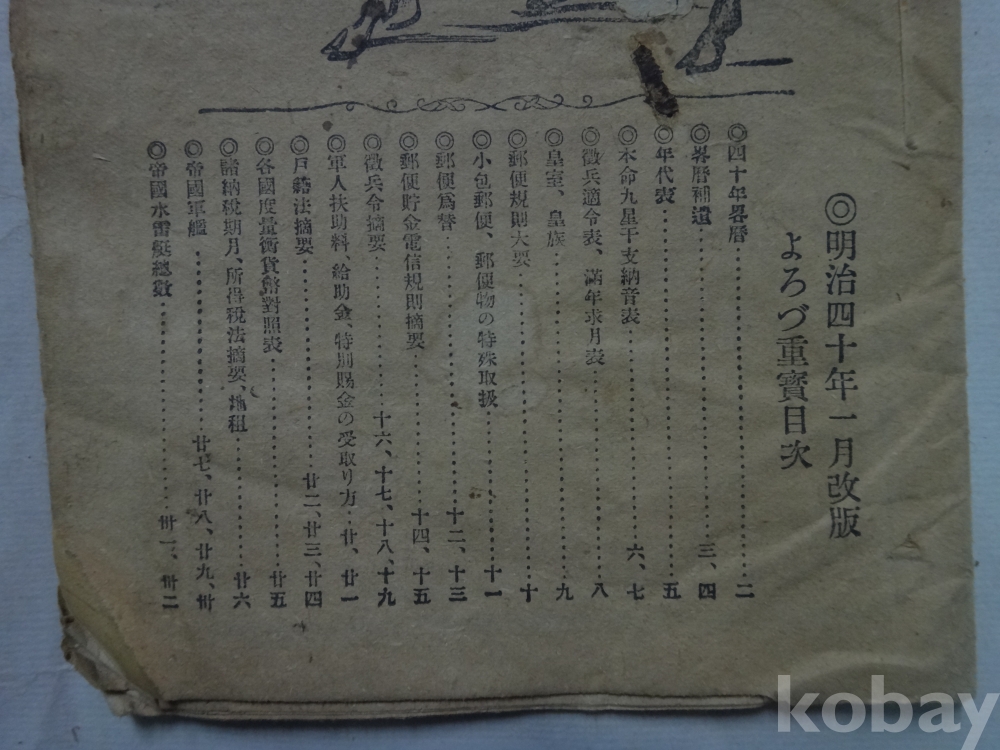 ◎明治四十年一月改版
よろづ重寳目次
◎四十年畧曆……二
◎畧曆補遺……三、四
◎年代表……五
◎本命九星干支納音表……六、七
◎徵兵適令表、滿年求月表……八
◎皇室、皇族……九
◎郵便規則大要……十
◎小包郵便、郵便物の特殊取扱……十一
◎郵便爲替……十二、十三
◎郵便貯金電信規則摘要……十四、十五
◎徵兵令摘要……十六、十七、十八、十九
◎軍人扶助料、給助金、特別賜金の受取り方…廿、廿一
◎戶籍法摘要……廿二、廿三、廿四
◎各國度量衡貨幣對照表……廿五
◎諸納稅期月、所得稅法摘要、地租……廿六
◎帝國軍艦……廿七、廿八、廿九、卅
◎帝國水雷艇總數……卅一、卅二
kobay